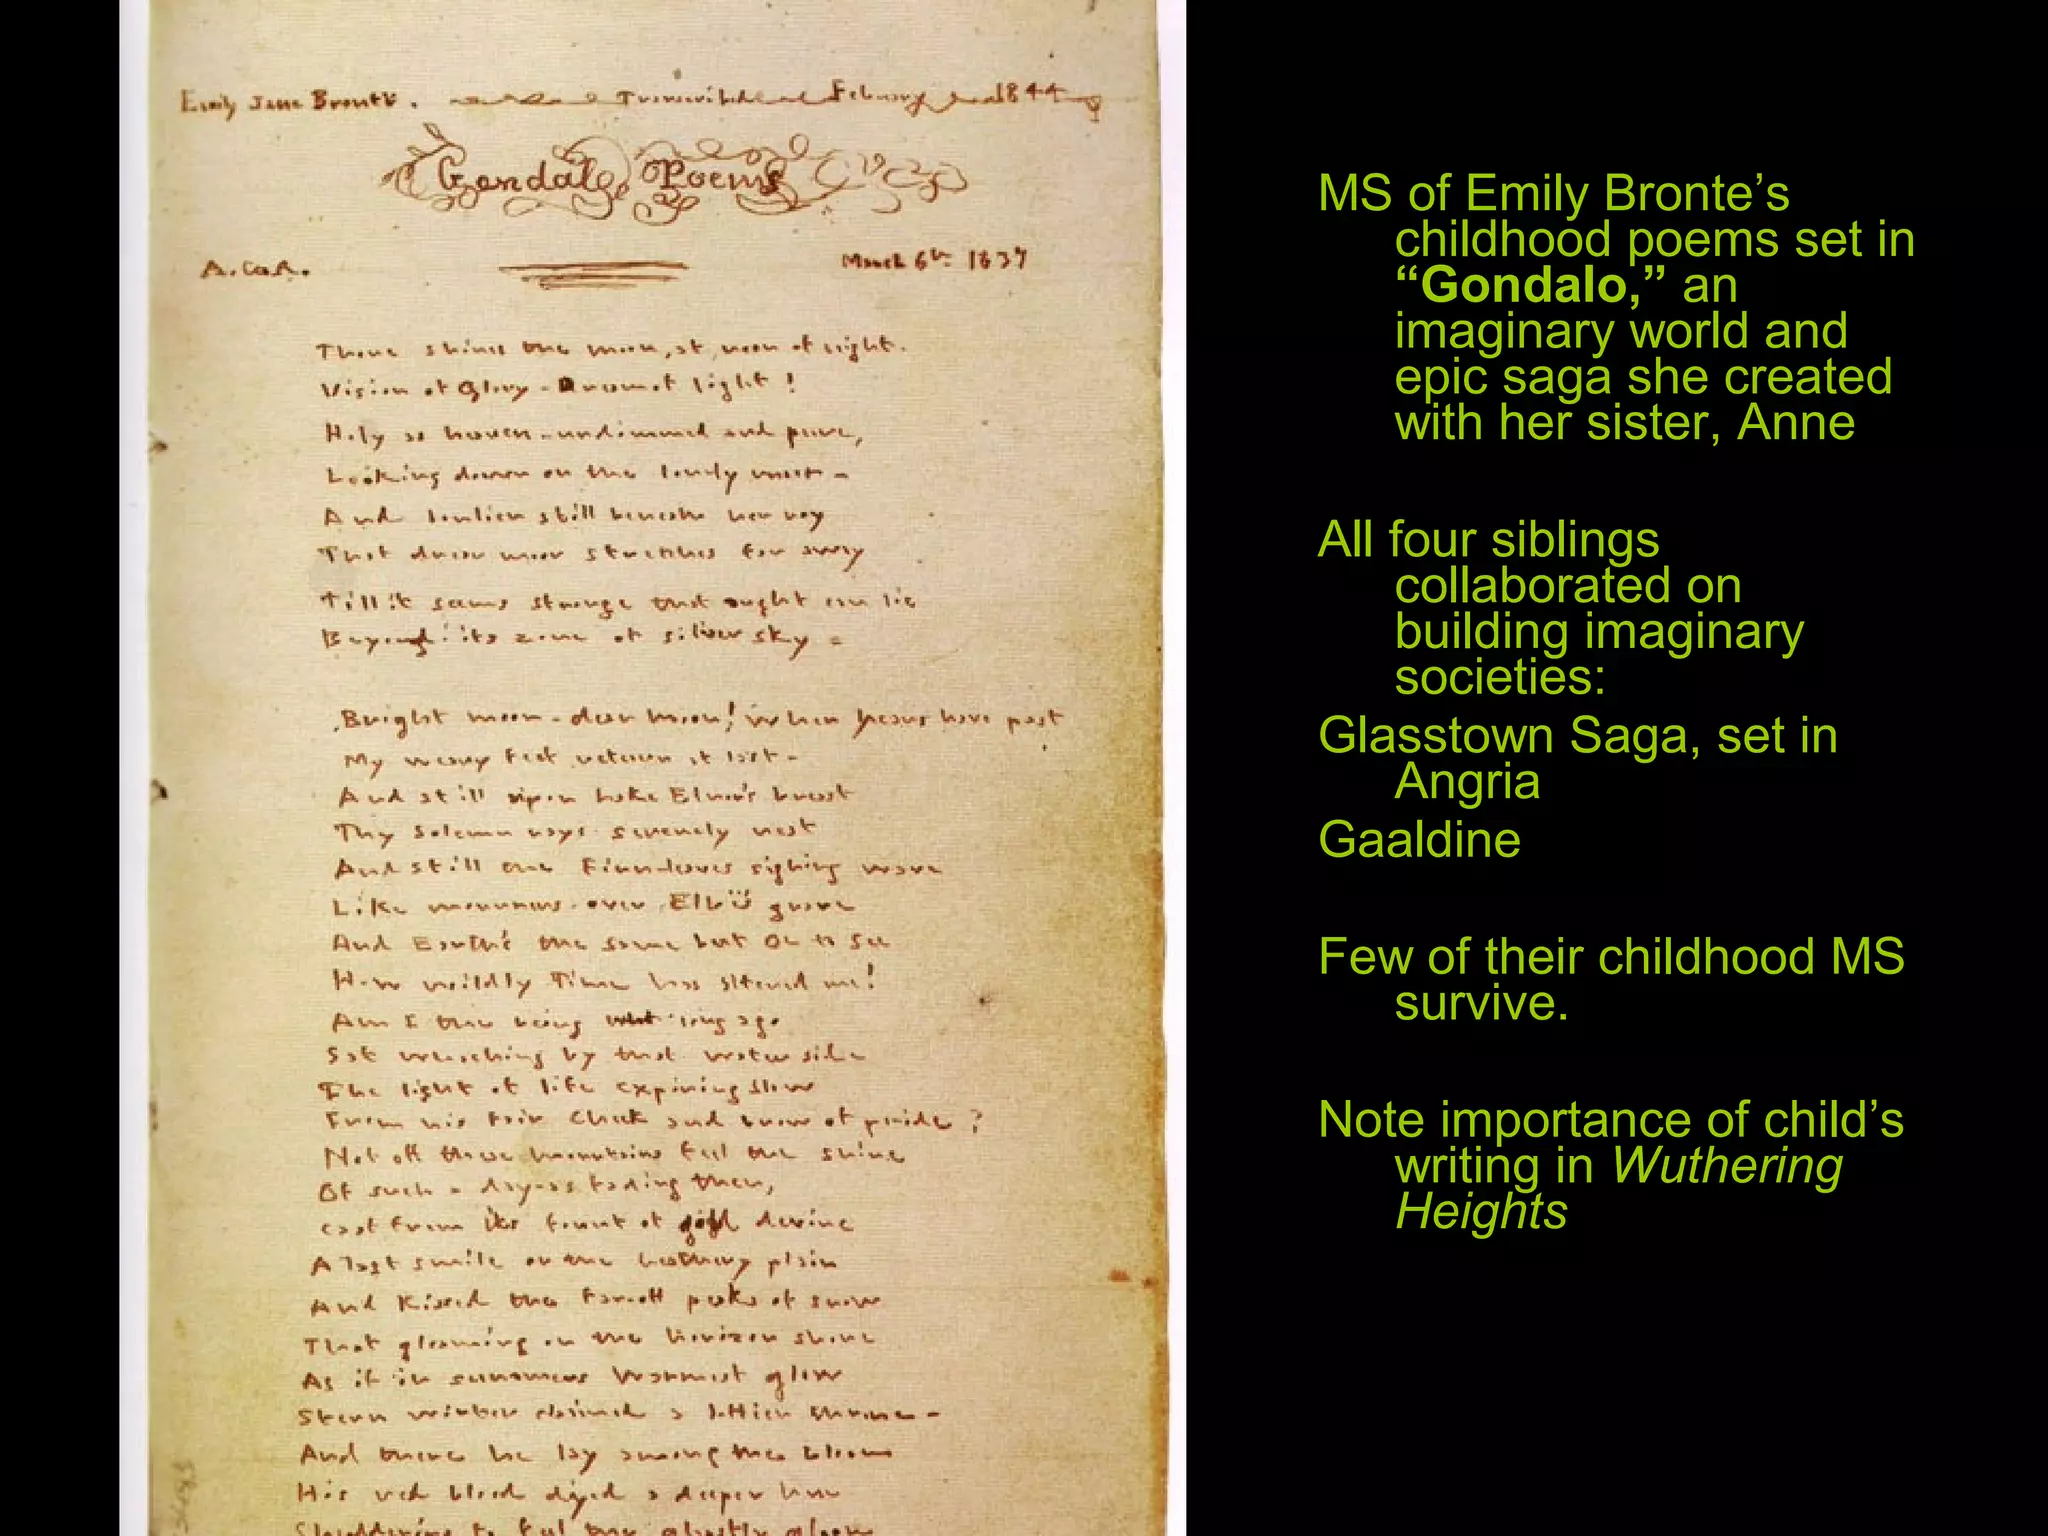 Emily Jane Brontë. Transcribed February 1844
Gondal Poems
A.G.A. March 6th 1837
There shines the moon, at noon of night.
Vision of Glory - Dream of light!
Holy as heaven - undimmed and pure,
Looking down on the lonely moor -
And lonlier still beneath her ray
That drear moor stretches far away
Till it seems strange that aught can lie
Beyond its zone of silver sky -
Bright moon - dear moon! when years have past
My weary feet return at last -
And still upon Lake Elnor's breast
Thy solemn rays serenely rest
And still the Fern-leaves sighing wave
Like mourners over Elbë's grave
And Earth's the same but Oh to see
How wildly Time has altered me!
Am I the being who long ago
Sat watching by that water side
The light of life expiring slow
From his fair cheek and brow of pride?
Not oft these mountains feel the shine
Of such a day - as fading then,
cast from its fount of gold devine
A last smile on the heathery plain
And kissed the far-off peaks of snow
That gleaming on the horizon shone
As if in summers warmest glow
Stern winter claimed a loftier throne -
And there he lay among the bloom
His red blood dyed a deeper hue
Shuddering to feel the ghostly gloom
MS of Emily Bronte’s
childhood poems set in
“Gondalo,” an
imaginary world and
epic saga she created
with her sister, Anne
All four siblings
collaborated on
building imaginary
societies:
Glasstown Saga, set in
Angria
Gaaldine
Few of their childhood MS
survive.
Note importance of child’s
writing in Wuthering
Heights